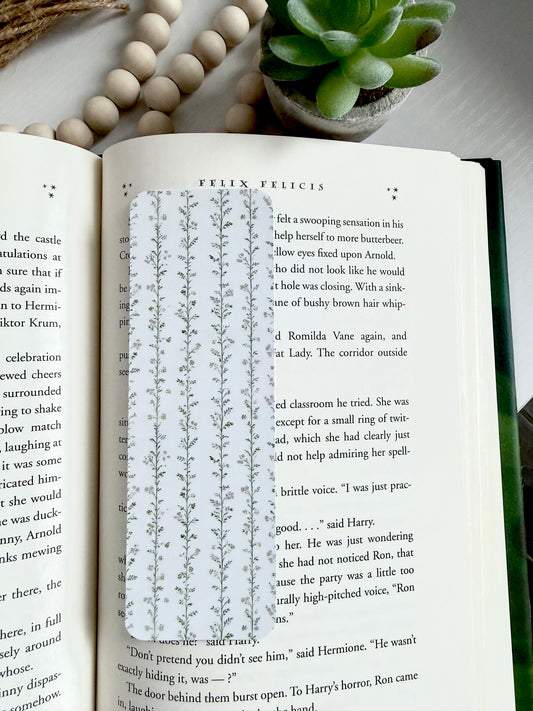 rd the castle
atulations at
sure that if
ds again im-
n to Hermi-
iktor Krum,
celebration
ewed cheers
surrounded
ing to shake
olow match
, laughing at
it was some
ricated him-
t she would
ne was duck-
nny, Arnold
nks mewing
er there, the
here, in full
sely around
whose.
inny dispas-
somehow.
FELIX FELICIS
felt a swooping sensation in his
help herself to more butterbeer.
llow eyes fixed upon Arnold.
ho did not look like he would
t hole was closing. With a sink-
ane of bushy brown hair whip-
d Romilda Vane again, and
at Lady. The corridor outside
see
ed classroom he tried. She was
except for a small ring of twit-
ad, which she had clearly just
d not help admiring her spell-
brittle voice. "I was just prac-
good. . . ." said Harry.
her. He was just wondering
she had not noticed Ron, that
ause the party was a little too
urally high-pitched voice, "Ron
ns."
does he?" said Harry.
"Don't pretend you didn't see him," said Hermione. "He wasn't
exactly hiding it, was — ?"
The door behind them burst open. To Harry's horror, Ron came
in, the hand.